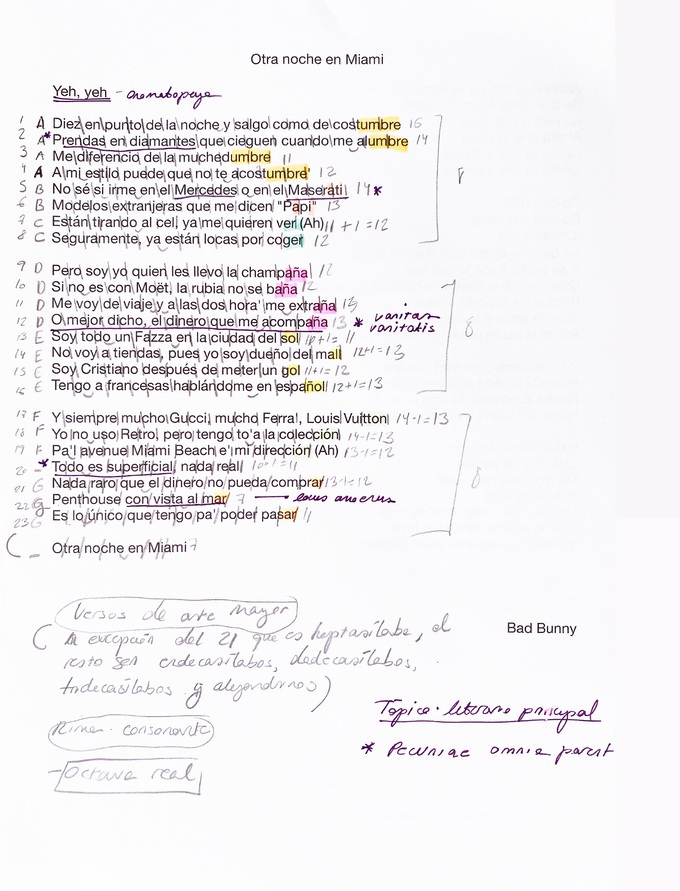 Otra noche en Miami
Yeh, yeh - onomatopeya
1 A Diez en punto de la noche y salgo como de costumbre 16
2 A* Prendas en diamantes que cieguen cuando me alumbre 14
3 A Me diferencio de la muchedumbre 11
4 A A mi estilo puede que no te acostumbre' 12
5 B No sé si irme en el Mercedes o en el Maserati 14*
6 B Modelos extranjeras que me dicen "Papi" 13
7 C Están tirando al cel, ya me quieren ver (Ah) 11 + 1 = 12
8 C Seguramente, ya están locas por coger 12
8
9 D Pero soy yo quien les llevo la champaña 12
10 D Si no es con Moët, la rubia no se baña 12
11 D Me voy de viaje y a las dos hora' me extraña 13
12 D O mejor dicho, el dinero que me acompaña 13 * vanitas vanitatis
13 E Soy todo un Fazza en la ciudad del sol 10+1= 11
14 E No voy a tiendas, pues yo soy dueño del mall 12+1=13
15 E Soy Cristiano después de meter un gol 11+1=12
16 E Tengo a francesas hablándome en español 12+1=13
8
17 F Y siempre mucho Gucci, mucho Ferra!, Louis Vuitton 14-1=13
18 F Yo no uso Retro, pero tengo to'a la colección 14-1=13
19 F Pa'l avenue Miami Beach e' mi dirección (Ah) 13-1=12
20 - * Todo es superficial, nada real 10+1=11
21 G Nada raro que el dinero no pueda comprar 13-1=12
22 G Penthouse con vista al mar 7 locus amoenus
23 G Es lo único que tengo pa' poder pasar 11
8
- Otra noche en Miami 7
Versos de arte mayor
(A excepción del 21 que es heptasílabo, el
resto son endecasílabos, dodecasílabos,
tridecasílabos y alejandrinos)
Bad Bunny
Rima consonante
- Octava real
Tópico literario principal
* Pecuniae omnia parent